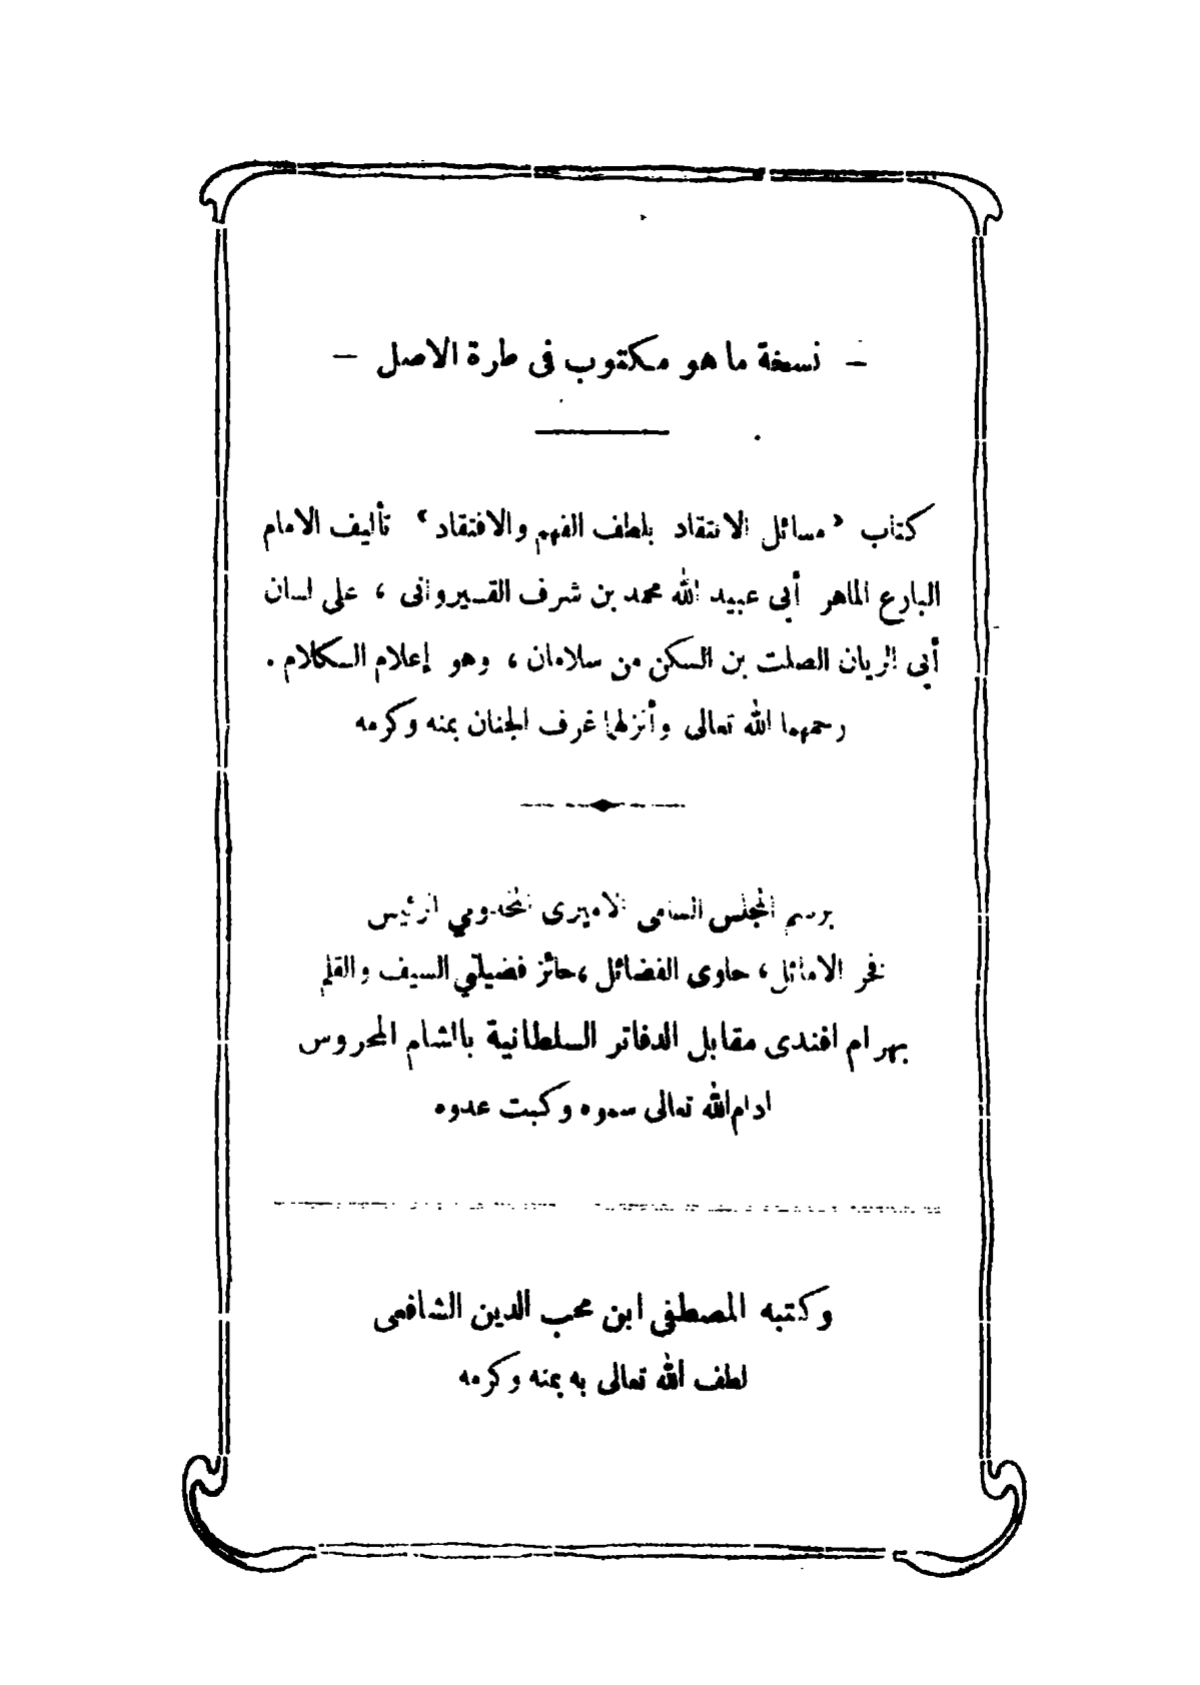 – نسخة ما هو مكتوب فى طرة الاصل –
كتاب « مسائل الانتقاد بلطف الفهم والافتقاد » تأليف الامام
البارع الماهر أبى عبيد الله محمد بن شرف القيروانى ، على لسان
أبى الريان الصلت بن السكن من سلامان ، وهو إعلام الكلام .
رحمهما الله تعالى وأنزلهما غرف الجنان بمنه وكرمه
برسم المجلس السامى الاميرى المخدومي الرئيس
فخر الاماثل ، حاوى الفضائل ، حائز فضيلتي السيف والقلم
بهرام افندى مقابل الدفاتر السلطانية بالشام المحروس
ادام الله تعالى سموه وكبت عدوه
وكتبه المصطفى ابن محب الدين الشافعى
لطف الله تعالى به بمنه وكرمه